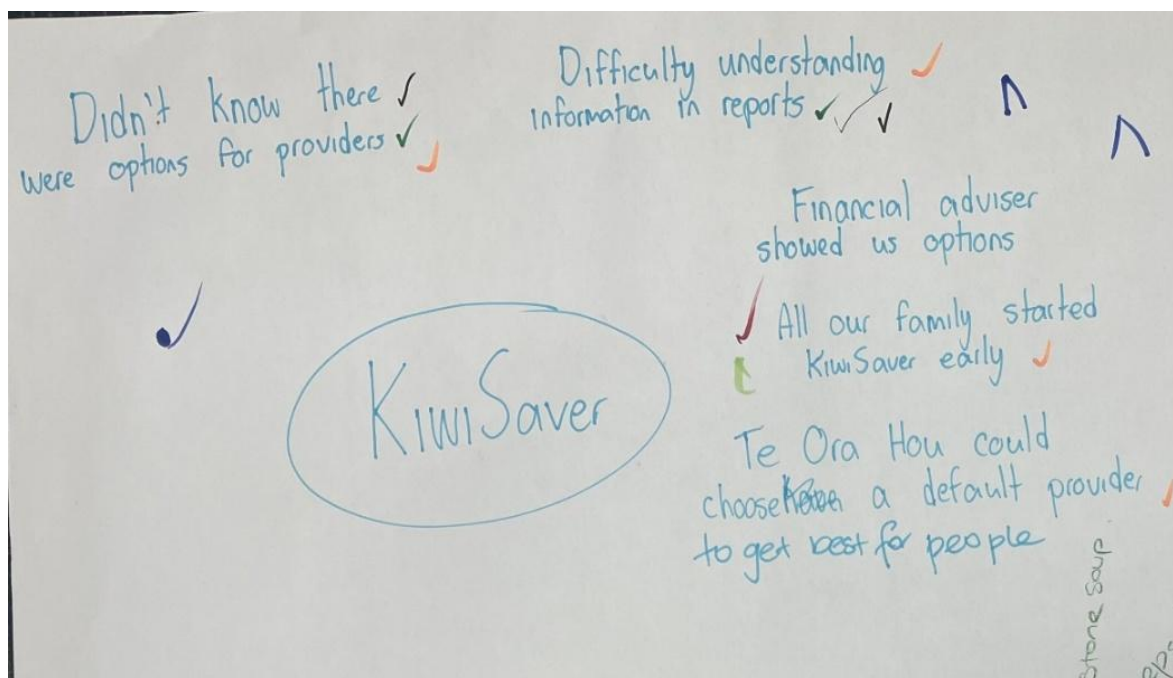 Didn't know there
were options for providers
Difficulty understanding
information in reports
Financial adviser
showed us options
All our family started
KiwiSaver early
KiwiSaver
Te Ora Hou could
choose a default provider
to get best for people
Stone Soup